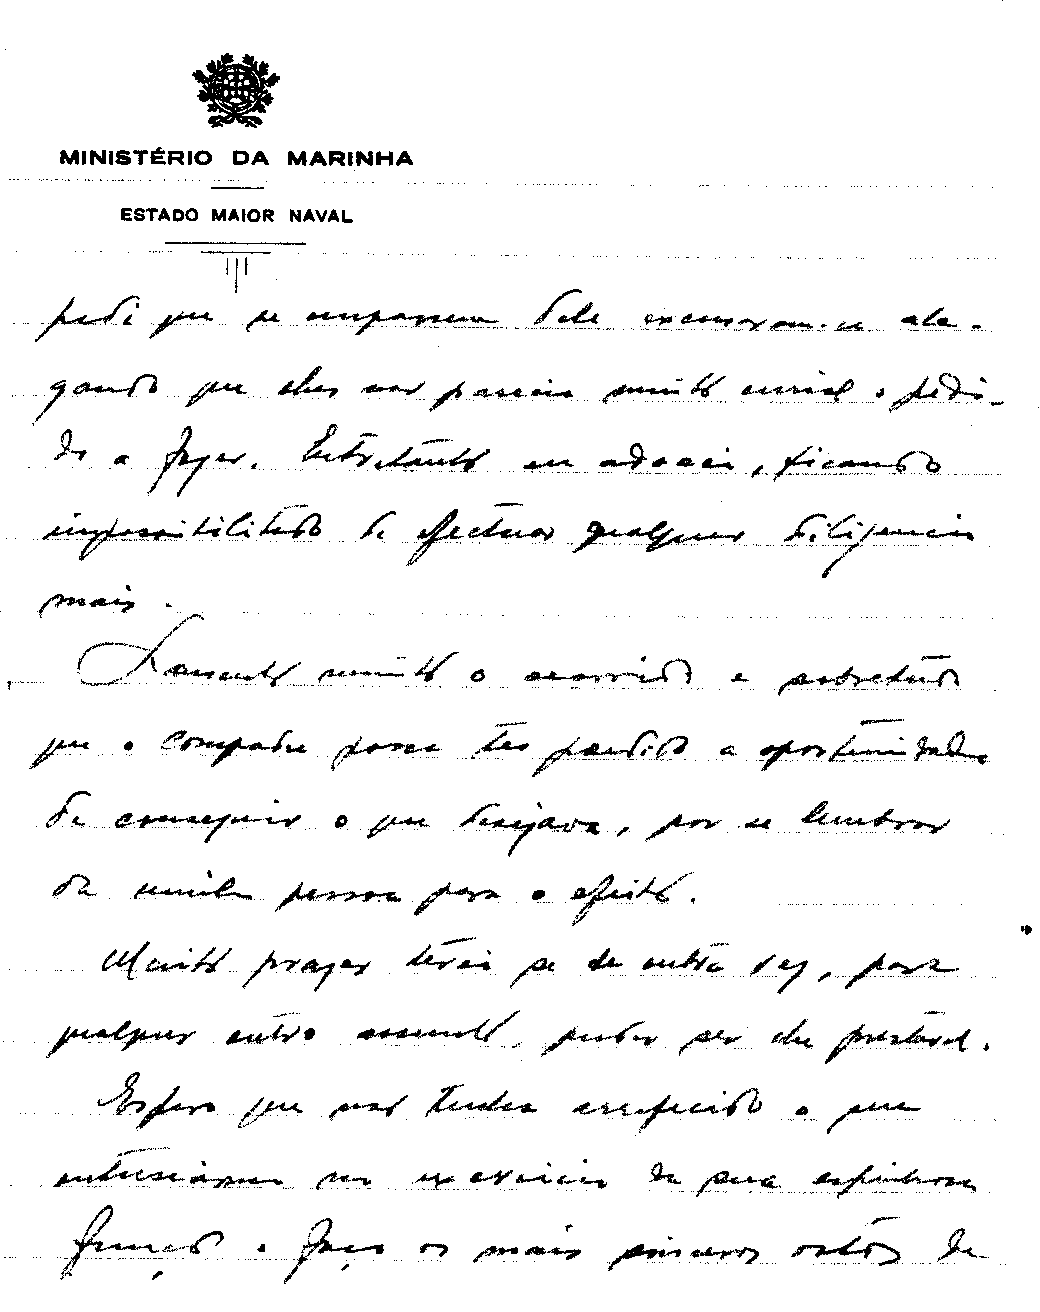 MINISTÉRIO DA MARINHA
ESTADO MAIOR NAVAL
pedi que se ocupassem dele excusaram-se ale-
gando que lhes não parecia muito curial o pedi-
do a fazer. Entretanto eu adoeci, ficando
impossibilitado de efectuar qualquer diligencia
mais.
Lamento muito o ocorrido e sobretudo
que o compadre possa ter perdido a oportunidade
de conseguir o que desejava, por se lembrar
da minha pessoa para o efeito.
Muito prazer terei se de outra vez, para
qualquer outro assunto, puder ser lhe prestavel.
Espero que não tenha arrefecido o seu
entusiasmo no exercicio da sua espinhosa
função e faço os mais sinceros votos de